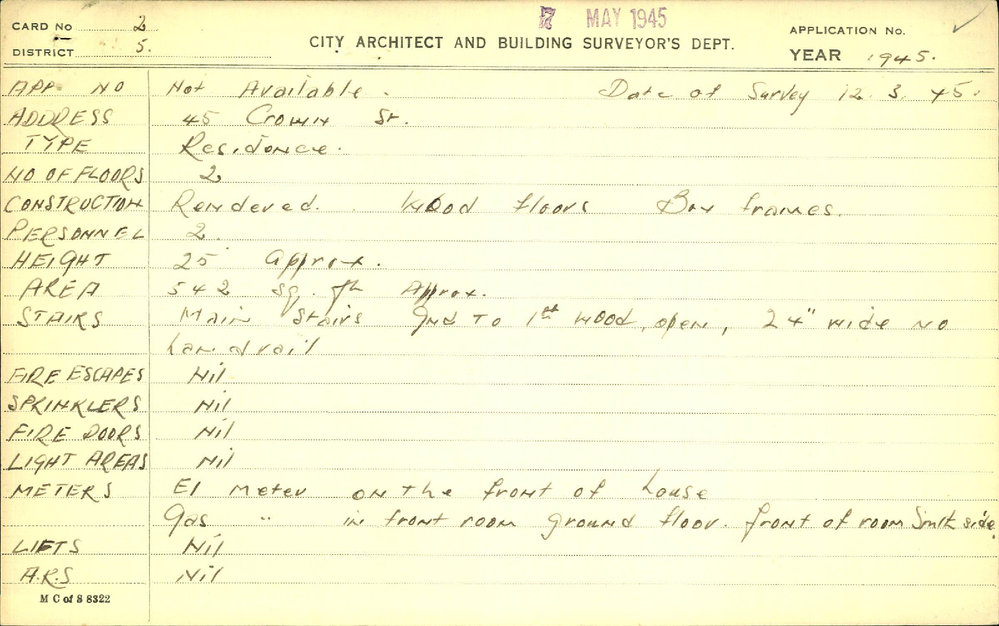 CARD No 2
DISTRICT 5.
7 MAY 1945
CITY ARCHITECT AND BUILDING SURVEYOR'S DEPT.
APPLICATION No.
YEAR 1945.
APP. NO Not Available. Date of Survey 12.3.45.
ADDRESS 45 Crown St.
TYPE Residence.
NO OF FLOORS 2
CONSTRUCTION Rendered. Wood floors Box frames.
PERSONNEL 2.
HEIGHT 25' approx.
AREA 542 sq. ft Approx.
STAIRS Main stairs Gnd to 1st wood, open, 24" wide no
handrail
FIRE ESCAPES Nil
SPRINKLERS Nil
FIRE DOORS Nil
LIGHT AREAS Nil
METERS El meter on the front of house
Gas " in front room ground floor. front of room Snth side.
LIFTS Nil
A.R.S Nil
M C of S 8322